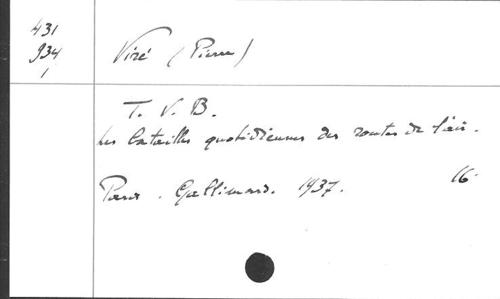 431
934
1
Viré (Pierre)
T. V. B.
Les batailles quotidiennes des routes de l'air.
Paris. Gallimard. 1937. 16.